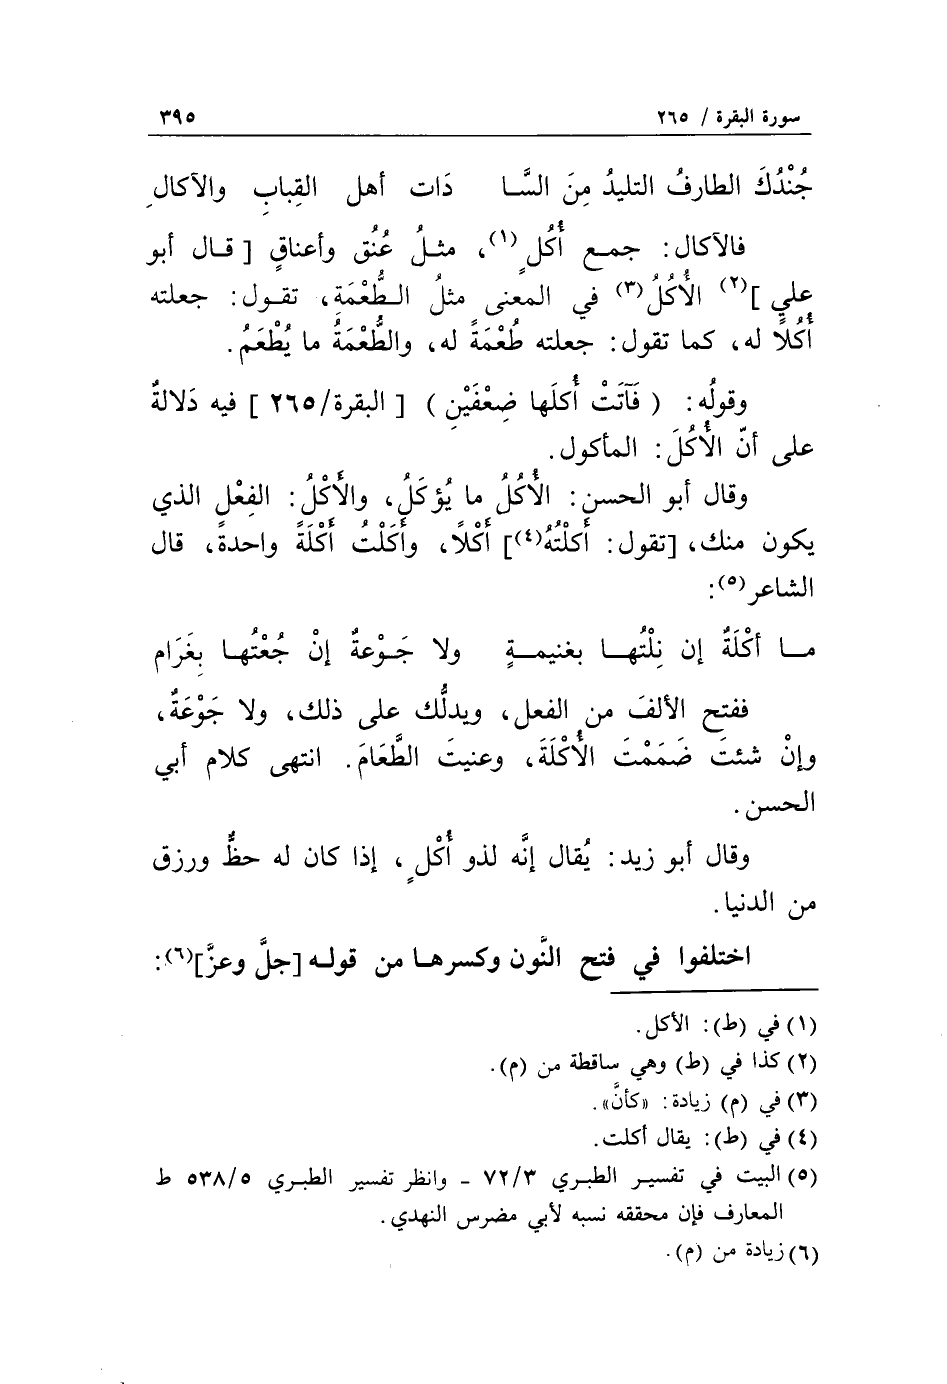 سورة البقرة / ٢٦٥ ٣٩٥
جُنْدُكَ الطارفُ التليدُ مِنَ السَّا دَات أهل القِبابِ والآكالِ
فالآكال: جمع أُكُلٍ(١)، مثلُ عُنُق وأعناقٍ [ قال أبو
علي ](٢) الأُكُلُ(٣) في المعنى مثلُ الطُّعْمَةِ، تقول: جعلته
أُكُلًا له، كما تقول: جعلته طُعْمَةً له، والطُّعْمَةُ ما يُطْعَمُ.
وقولُه: ( فَآتَتْ أُكلَها ضِعْفَيْنِ ) [ البقرة/٢٦٥ ] فيه دَلالةٌ
على أنّ الأُكُلَ: المأكول.
وقال أبو الحسن: الأُكُلُ ما يُؤكَلُ، والأَكْلُ: الفِعْل الذي
يكون منك، [تقول: أَكلْتُهُ(٤)] أَكْلًا، وأَكَلْتُ أَكْلَةً واحدةً، قال
الشاعر(٥):
مـا أَكْلَةٌ إن نِلْتُها بغنيمةٍ ولا جَوْعةٌ إنْ جُعْتُها بِغَرَام
ففتح الألفَ من الفعل، ويدلُّك على ذلك، ولا جَوْعَةٌ،
وإنْ شئتَ ضَمَمْتَ الأُكْلَةَ، وعنيتَ الطَّعَامَ. انتهى كلام أبي
الحسن.
وقال أبو زيد: يُقال إنَّه لذو أُكْلٍ، إذا كان له حظٌّ ورزق
من الدنيا.
اختلفوا في فتح النَّون وكسرها من قوله [جلَّ وعزَّ](٦):
(١) في (ط): الأكل.
(٢) كذا في (ط) وهي ساقطة من (م).
(٣) في (م) زيادة: «كأنَّ».
(٤) في (ط): يقال أكلت.
(٥) البيت في تفسير الطبري ٧٢/٣ - وانظر تفسير الطبري ٥٣٨/٥ ط
المعارف فإن محققه نسبه لأبي مضرس النهدي.
(٦) زيادة من (م).